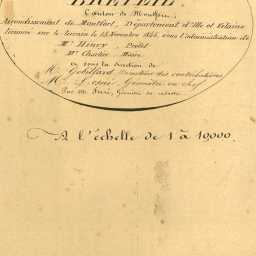 BRETEIL
Canton de Montfort,
Arrondissement de Montfort, Département d'Ille et Vilaine
terminé sur le terrain le 15 Novembre 1844, sous l'administration de
Mr Henry, Préfet
Mr Charlier Maire
et sous la direction de
Mr Gobillard, Directeur des contributions
Mr Géomètre en chef
Par Mr Géomètre du cadastre
A l'échelle de 1 à 10000.